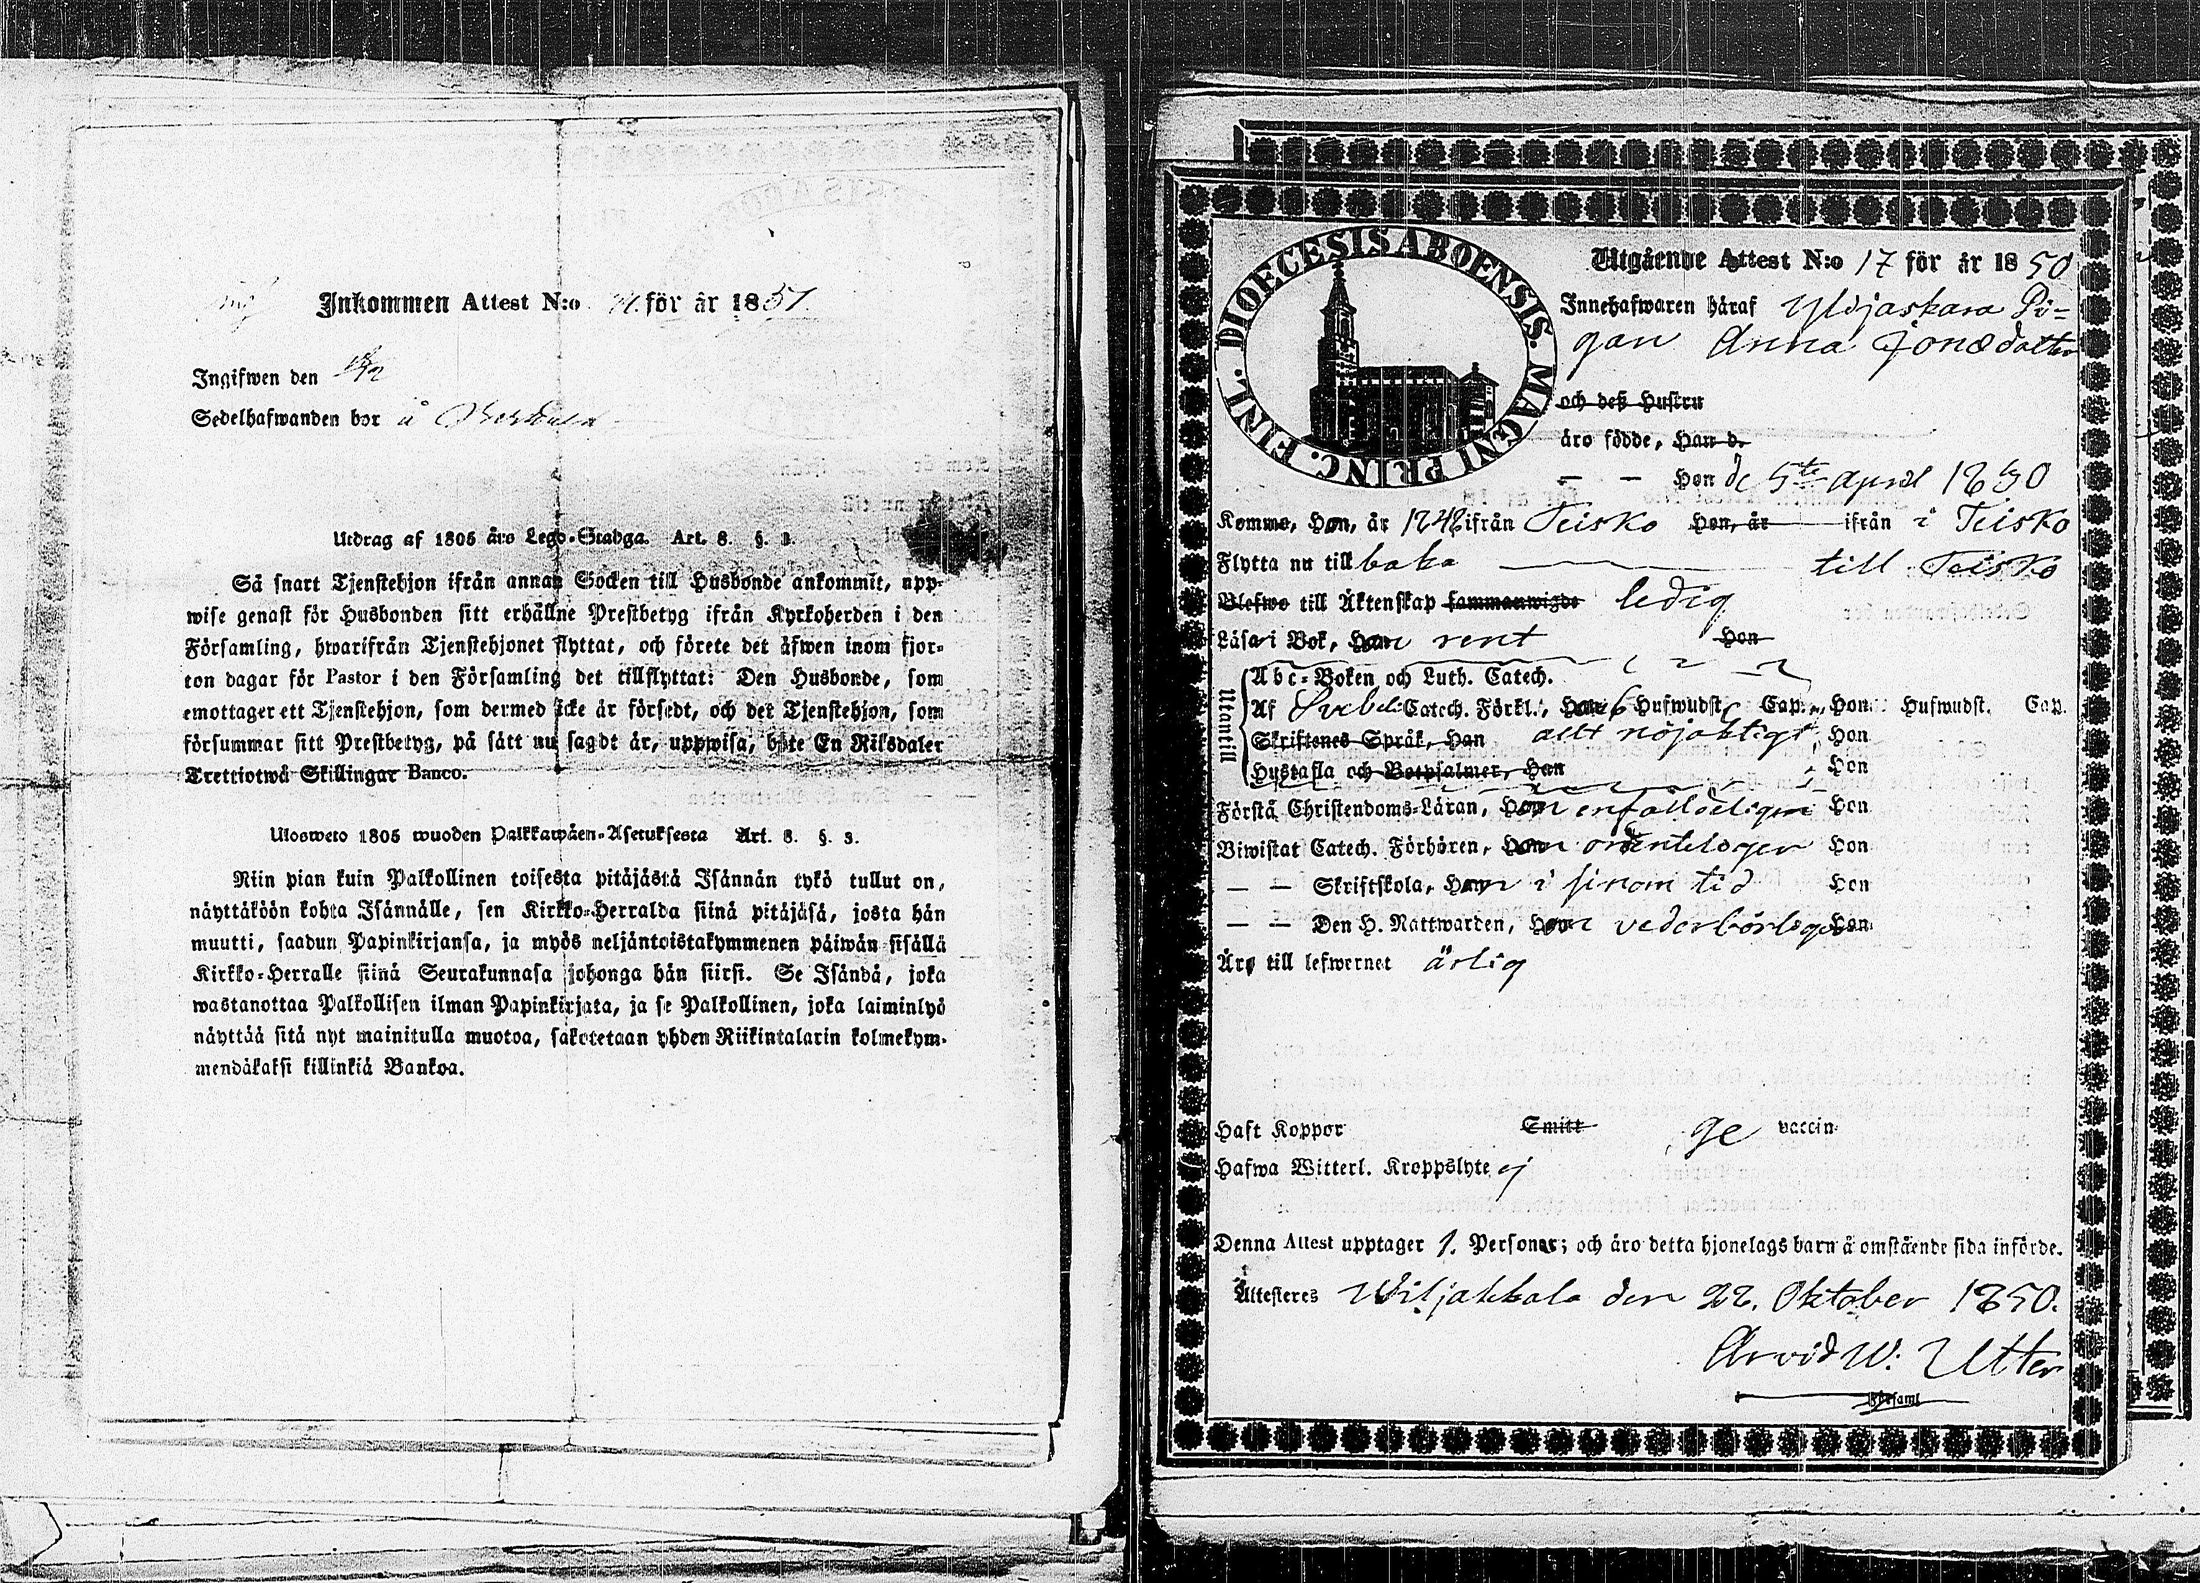 Inkommen Attest N:o för år 1851.
Ingifwen den
Sedelhafwanden bor å
Utdrag af 1805 års Lego-Stadga. Art. 8. §. 3.
Så snart Tjenstehjon ifrån annan Socken till Husbonde ankommit, upp-
wise genast för Husbonden sitt erhållne Prestbetyg ifrån Kyrkoherden i den
Församling, hwarifrån Tjenstehjonet flyttat, och förete det äfwen inom fjor-
ton dagar för Pastor i den Församling det tillflyttat: Den Husbonde, som
emottager ett Tjenstehjon, som dermed icke är försedt, och det Tjenstehjon, som
försummar sitt Prestbetyg, på sätt nu sagdt är, uppwisa, böte En Riksdaler
Trettiotwå Skillingar Banco.
Ulosweto 1805 wuoden Palkkawäen-Asetuksesta Art. 8. §. 3.
Niin pian kuin Palkollinen toisesta pitäjästä Isännän tykö tullut on,
näyttäköön kohta Isännälle, sen Kirkko-Herralda siinä pitäjäsä, josta hän
muutti, saadun Papinkirjansa, ja myös neljäntoistakymmenen päiwän sisällä
Kirkko-Herralle siinä Seurakunnasa johonga hän siirsi. Se Isändä, joka
wastanottaa Palkollisen ilman Papinkirjata, ja se Palkollinen, joka laiminlyö
näyttää sitä nyt mainitulla muotoa, sakotetaan yhden Riikintalarin kolmekym-
mendäkaksi killinkiä Bankoa.
DIOECESIS ABOENSIS. MAGNI PRINC. FINL.
Utgående Attest N:o 17 för år 1850
Innehafwaren häraf Yldjaskara Pi=
gan Anna Jonsdotter
och deß Hustru
äro födde, Han d.
— — Hon d 5te April 1830
Komme, Hon, år 1848 ifrån Teisko Hon, år ifrån i Teisko
Flytta nu till baka till Teisko
Blefwe till Äktenskap sammanwigde ledig
Läsa i Bok, Han rent Hon
Utantill
Abc-Boken och Luth. Catech.
Af Svebel. Catech. Förkl., Han 6 Hufwudst. Cap. Hon Hufwudst. Cap.
Skriftenes Språk, Han allt nöjaktigt, Hon
Hustafla och Botpsalmer, Han Hon
Förstå Christendoms-Läran, Hon enfalldeligen Hon
Biwistat Catech. Förhören, Hon ordenteligen Hon
— — Skriftskola, Hon i sinom tid Hon
— — Den H. Nattwarden, Hon vederbörligen Hon
Äro till lefwernet ärlig
Haft Koppor Smitt ge vaccin
Hafwa Witterl. Kroppslyte ej
Denna Attest upptager 1. Personer; och äro detta hjonelags barn å omstående sida införde.
Attesteres i Wiljakkala den 22. Oktober 1850.
Arvid W. Utter